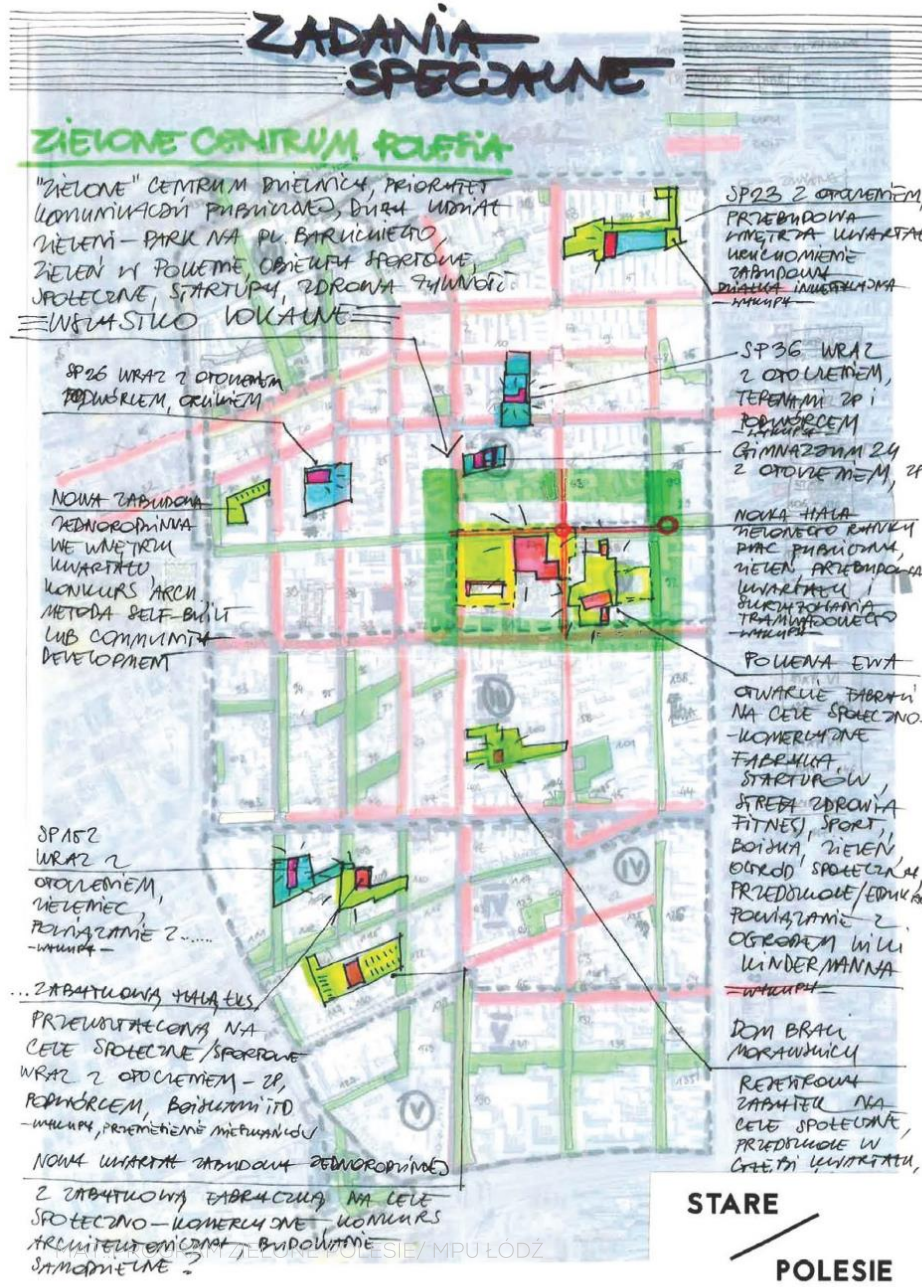 ZADANIA
SPECJALNE
ZIELONE CENTRUM POLESIA
"ZIELONE" CENTRUM DZIELNICY, PRIORYTET
KOMUNIKACJI PUBLICZNEJ, DUŻY UDZIAŁ
ZIELENI - PARK NA PL. BARLICKIEGO,
ZIELEŃ W POLLENIE OBIEKTY SPORTOWE,
SPOŁECZNE, STARTUPY, ZDROWA ŻYWNOŚĆ
WSZYSTKO LOKALNE
SP26 WRAZ Z OTOCZENIEM
PODWÓRCEM, ORLIKIEM
NOWA ZABUDOWA
JEDNORODZINNA
WE WNĘTRZU
KWARTAŁU
KONKURS ARCH.
METODA SELF-BUILT
LUB COMMUNITY
DEVELOPMENT
SP152
WRAZ Z
OTOCZENIEM,
ZIELENIEC,
POWIĄZANIE Z......
-WYKUPY-
...ZABYTKOWĄ HALĄ ŁKS
PRZEKSZTAŁCONĄ NA
CELE SPOŁECZNE/SPORTOWE
WRAZ Z OTOCZENIEM - ZP,
PODWÓRCEM, BOISKAMI ITD
-WYKUPY, PRZENIESIENIE MIESZKAŃCÓW
NOWY KWARTAŁ ZABUDOWY JEDNORODZINNEJ
Z ZABYTKOWĄ FABRYCZKĄ NA CELE
SPOŁECZNO-KOMERCYJNE KONKURS
ARCHITEKTONICZNY BUDOWANIE
SAMODZIELNE ?
SP23 Z OTOCZENIEM,
PRZEBUDOWA
WNĘTRZA KWARTAŁU
URUCHOMIENIE
ZABUDOWY
DZIAŁKA INWESTYCYJNA
-WYKUPY-
SP36 WRAZ
Z OTOCZENIEM,
TERENAMI ZP I
PODWÓRCEM
-WYKUPY-
GIMNAZJUM 24
Z OTOCZENIEM, ZP
NOWA HALA
ZIELONEGO RYNKU
PLAC PUBLICZNY,
ZIELEŃ PRZEBUDOWA
KWARTAŁU I
SKRZYŻOWANIA
TRAMWAJOWEGO
-WYKUPY-
POLLENA EWA
OTWARCIE FABRYKI
NA CELE SPOŁECZNO-
-KOMERCYJNE
FABRYKA
STARTUPÓW,
STREFA ZDROWIA
FITNESS, SPORT,
BOISKA, ZIELEŃ
OGRÓD SPOŁECZNY,
PRZEDSZKOLE/
POWIĄZANIE Z
OGRODEM WILLI
KINDERMANNA
-WYKUPY-
DOM BRACI
MORAWSKICH
REJESTROWY
ZABYTEK NA
CELE SPOŁECZNE,
PRZEDSZKOLE W
GŁĘBI KWARTAŁU,
III
IV
V
ZIELONE POLESIE/ MPU ŁÓDŹ
STARE
POLESIE